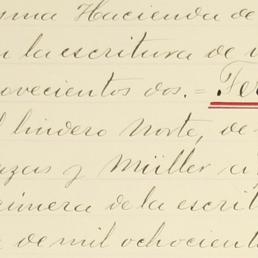 sma Hacienda de
n la escritura de v
ovecientos dos.= Ter
l lindero Norte, de
azas y Müller a
rimera de la escrit
a de mil ochocient